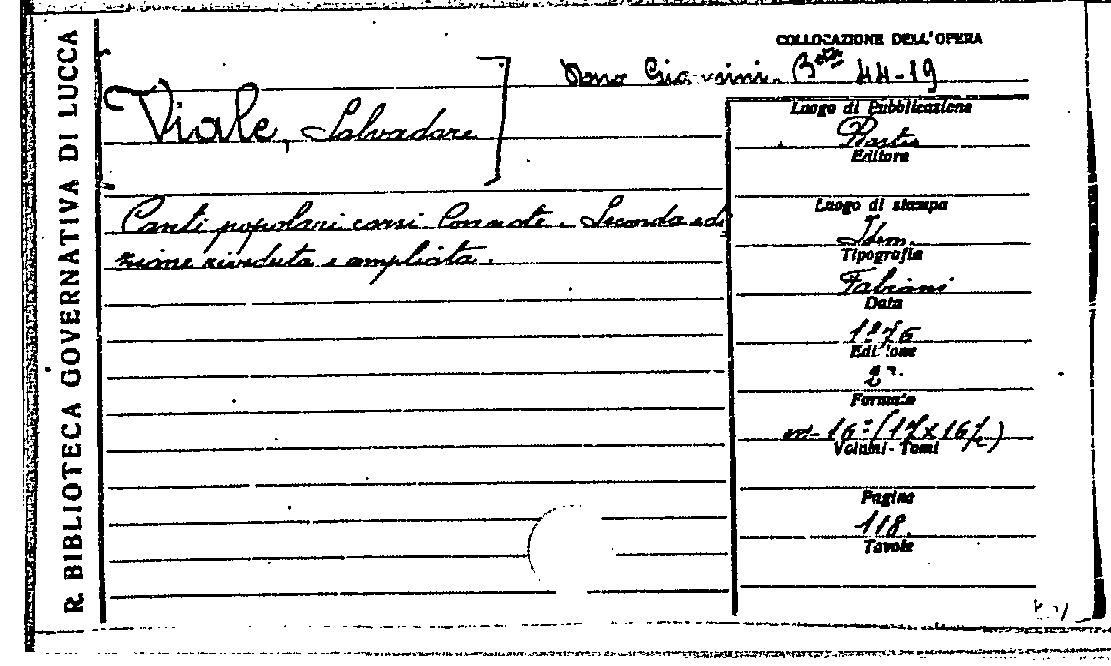 R. BIBLIOTECA GOVERNATIVA DI LUCCA
COLLOCAZIONE DELL'OPERA
Dono Giannini. B 44-19
[Viale, Salvadore]
Canti popolari corsi Con note - Seconda edi
zione riveduta e ampliata.
Luogo di Pubblicazione
Bastia
Editore
Luogo di stampa
Idem.
Tipografia
Fabiani
Data
1876
Edizione
2ª.
Formato
in-16° (17x16/2)
Volumi - Tomi
Pagine
118.
Tavole